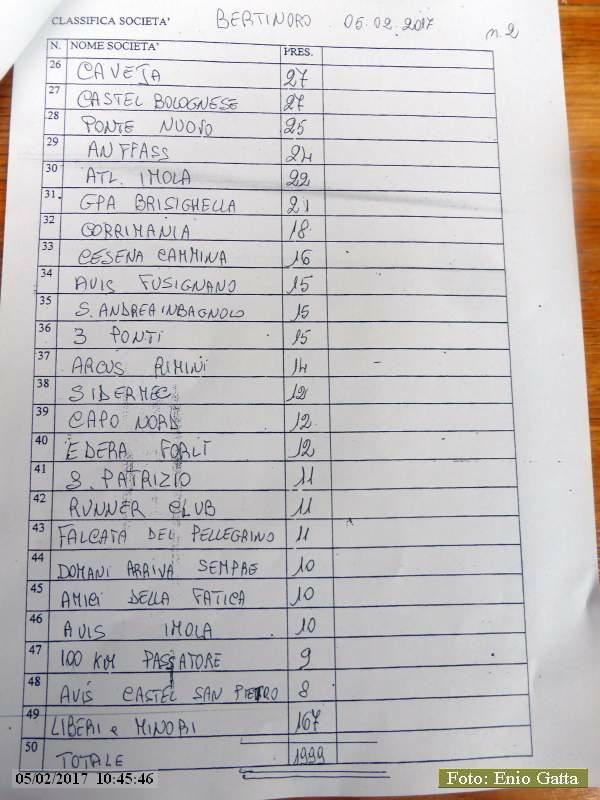 CLASSIFICA SOCIETA' BERTINORO 05.02.2017 n.2
N. NOME SOCIETA' PRES.
26 CAVEJA 27
27 CASTEL BOLOGNESE 27
28 PONTE NUOVO 25
29 ANFFASS 24
30 ATL. IMOLA 22
31. GPA BRISIGHELLA 21
32 CORRIMANIA 18
33 CESENA CAMMINA 16
34 AVIS FUSIGNANO 15
35 S. ANDREA IN BAGNOLO 15
36 3 PONTI 15
37 ARCUS RIMINI 14
38 SIDERMEC 12
39 CAPO NORD 12
40 EDERA FORLÌ 12
41 S. PATRIZIO 11
42 RUNNER CLUB 11
43 FALCATA DEL PELLEGRINO 11
44 DOMANI ARRIVA SEMPRE 10
45 AMICI DELLA FATICA 10
46 AVIS IMOLA 10
47 100 KM PASSATORE 9
48 AVIS CASTEL SAN PIETRO 8
49 LIBERI e MINORI 167
50 TOTALE 1999
05/02/2017 10:45:46
Foto: Enio Gatta